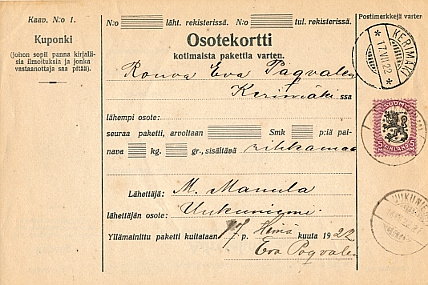 Kaav. N:o 1.
Kuponki
(johon sopii panna kirjallisia ilmoituksia ja jonka vastaanottaja saa pitää).
N:o läht. rekisterissä. N:o tul. rekisterissä.
Postimerkkejä varten
Osotekortti
kotimaista pakettia varten.
Rouva Eva Pagvalen
Kerimäki ssa
lähempi osote:
seuraa paketti, arvoltaan Smk p:iä painava kg. gr., sisältävä
Lähettäjä: M. Manula
lähettäjän osote: Uukuniemi
Yllämainittu paketti kuitataan 17 p. Heinä kuuta 1922
Eva Pagvalen
KERIMÄKI
17.VII.22
SUOMI
FINLAND